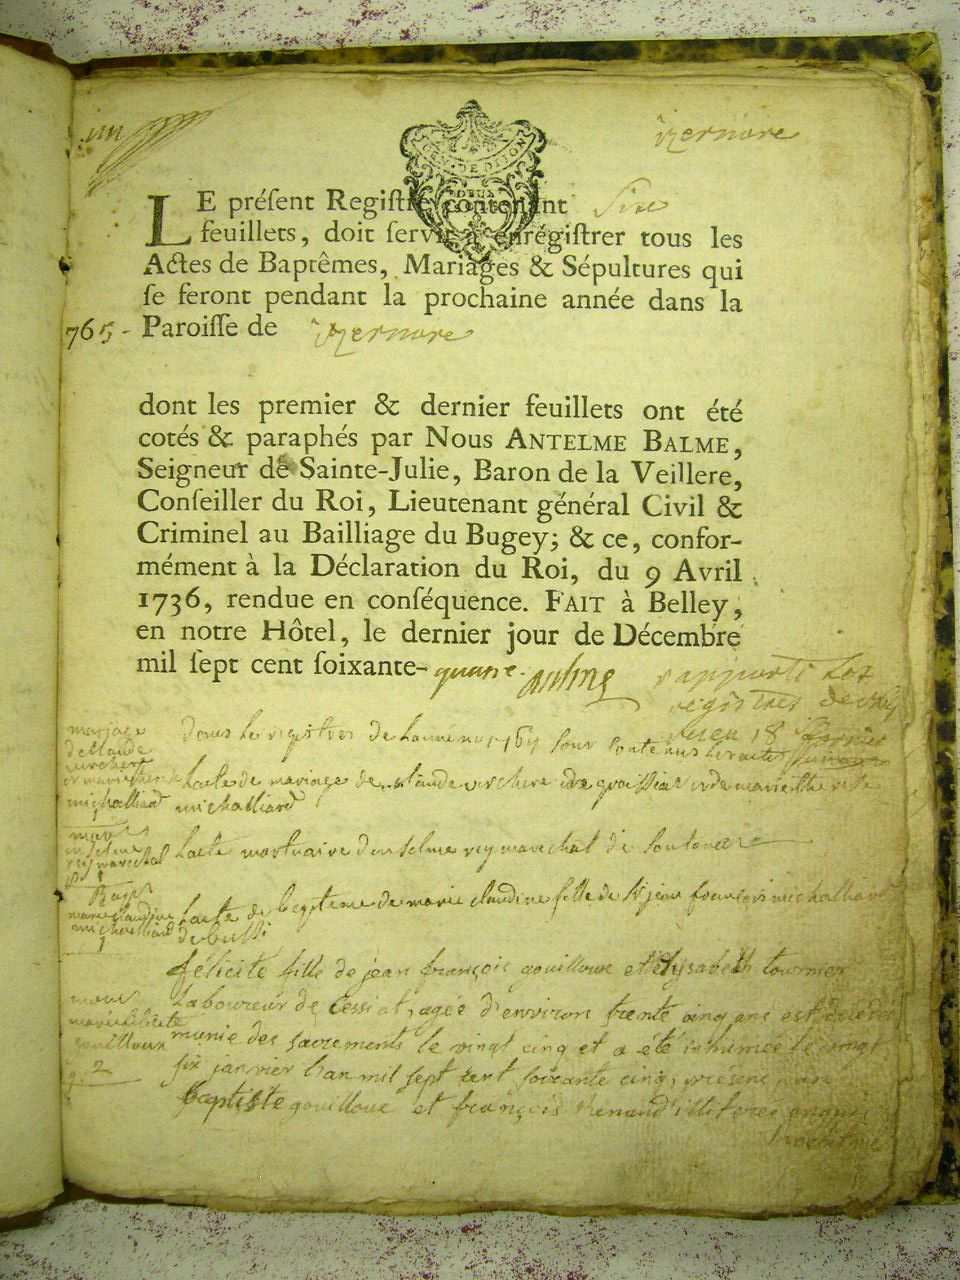 un
izernore
GEN. DE DIJON
DEUX
LE préſent Regiſtre contenant
feuillets, doit ſervir à enrégiſtrer tous les
Actes de Baptêmes, Mariages & Sépultures qui
ſe feront pendant la prochaine année dans la
765 - Paroiſſe de izernore
dont les premier & dernier feuillets ont été
cotés & paraphés par Nous ANTELME BALME,
Seigneur de Sainte-Julie, Baron de la Veillere,
Conſeiller du Roi, Lieutenant général Civil &
Criminel au Bailliage du Bugey; & ce, confor-
mément à la Déclaration du Roi, du 9 Avril
1736, rendue en conſéquence. FAIT à Belley,
en notre Hôtel, le dernier jour de Décembre
mil ſept cent ſoixante-quatre.
rapporté les
registres
18
mariage
de Claude
Dans le registres de
michalliard
l'acte de mariage de Claude
michalliard
marechal
l'acte mortuaire d'anselme rey marechal de
Bapt
marie claudine
michalliard
1
l'acte de bapteme de marie claudine fille de sr jean françois michalliard
de bussi
félicité fille de jean françois gouilloux et Elysabeth tournier
mort
marie félicité
gouilloux
2
laboureur de Cessiat, agée d'environ trente cinq ans est décédée
munie des sacrements le vingt cinq et a été inhumée le vingt
six janvier l'an mil sept cent soixante cinq, présens jean
baptiste gouilloux et françois illiterés enquis